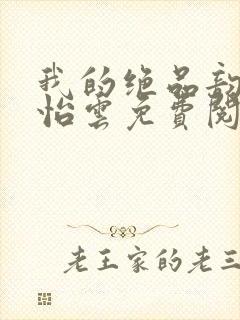 我的绝品
怡雲免費閱
老王家的老三